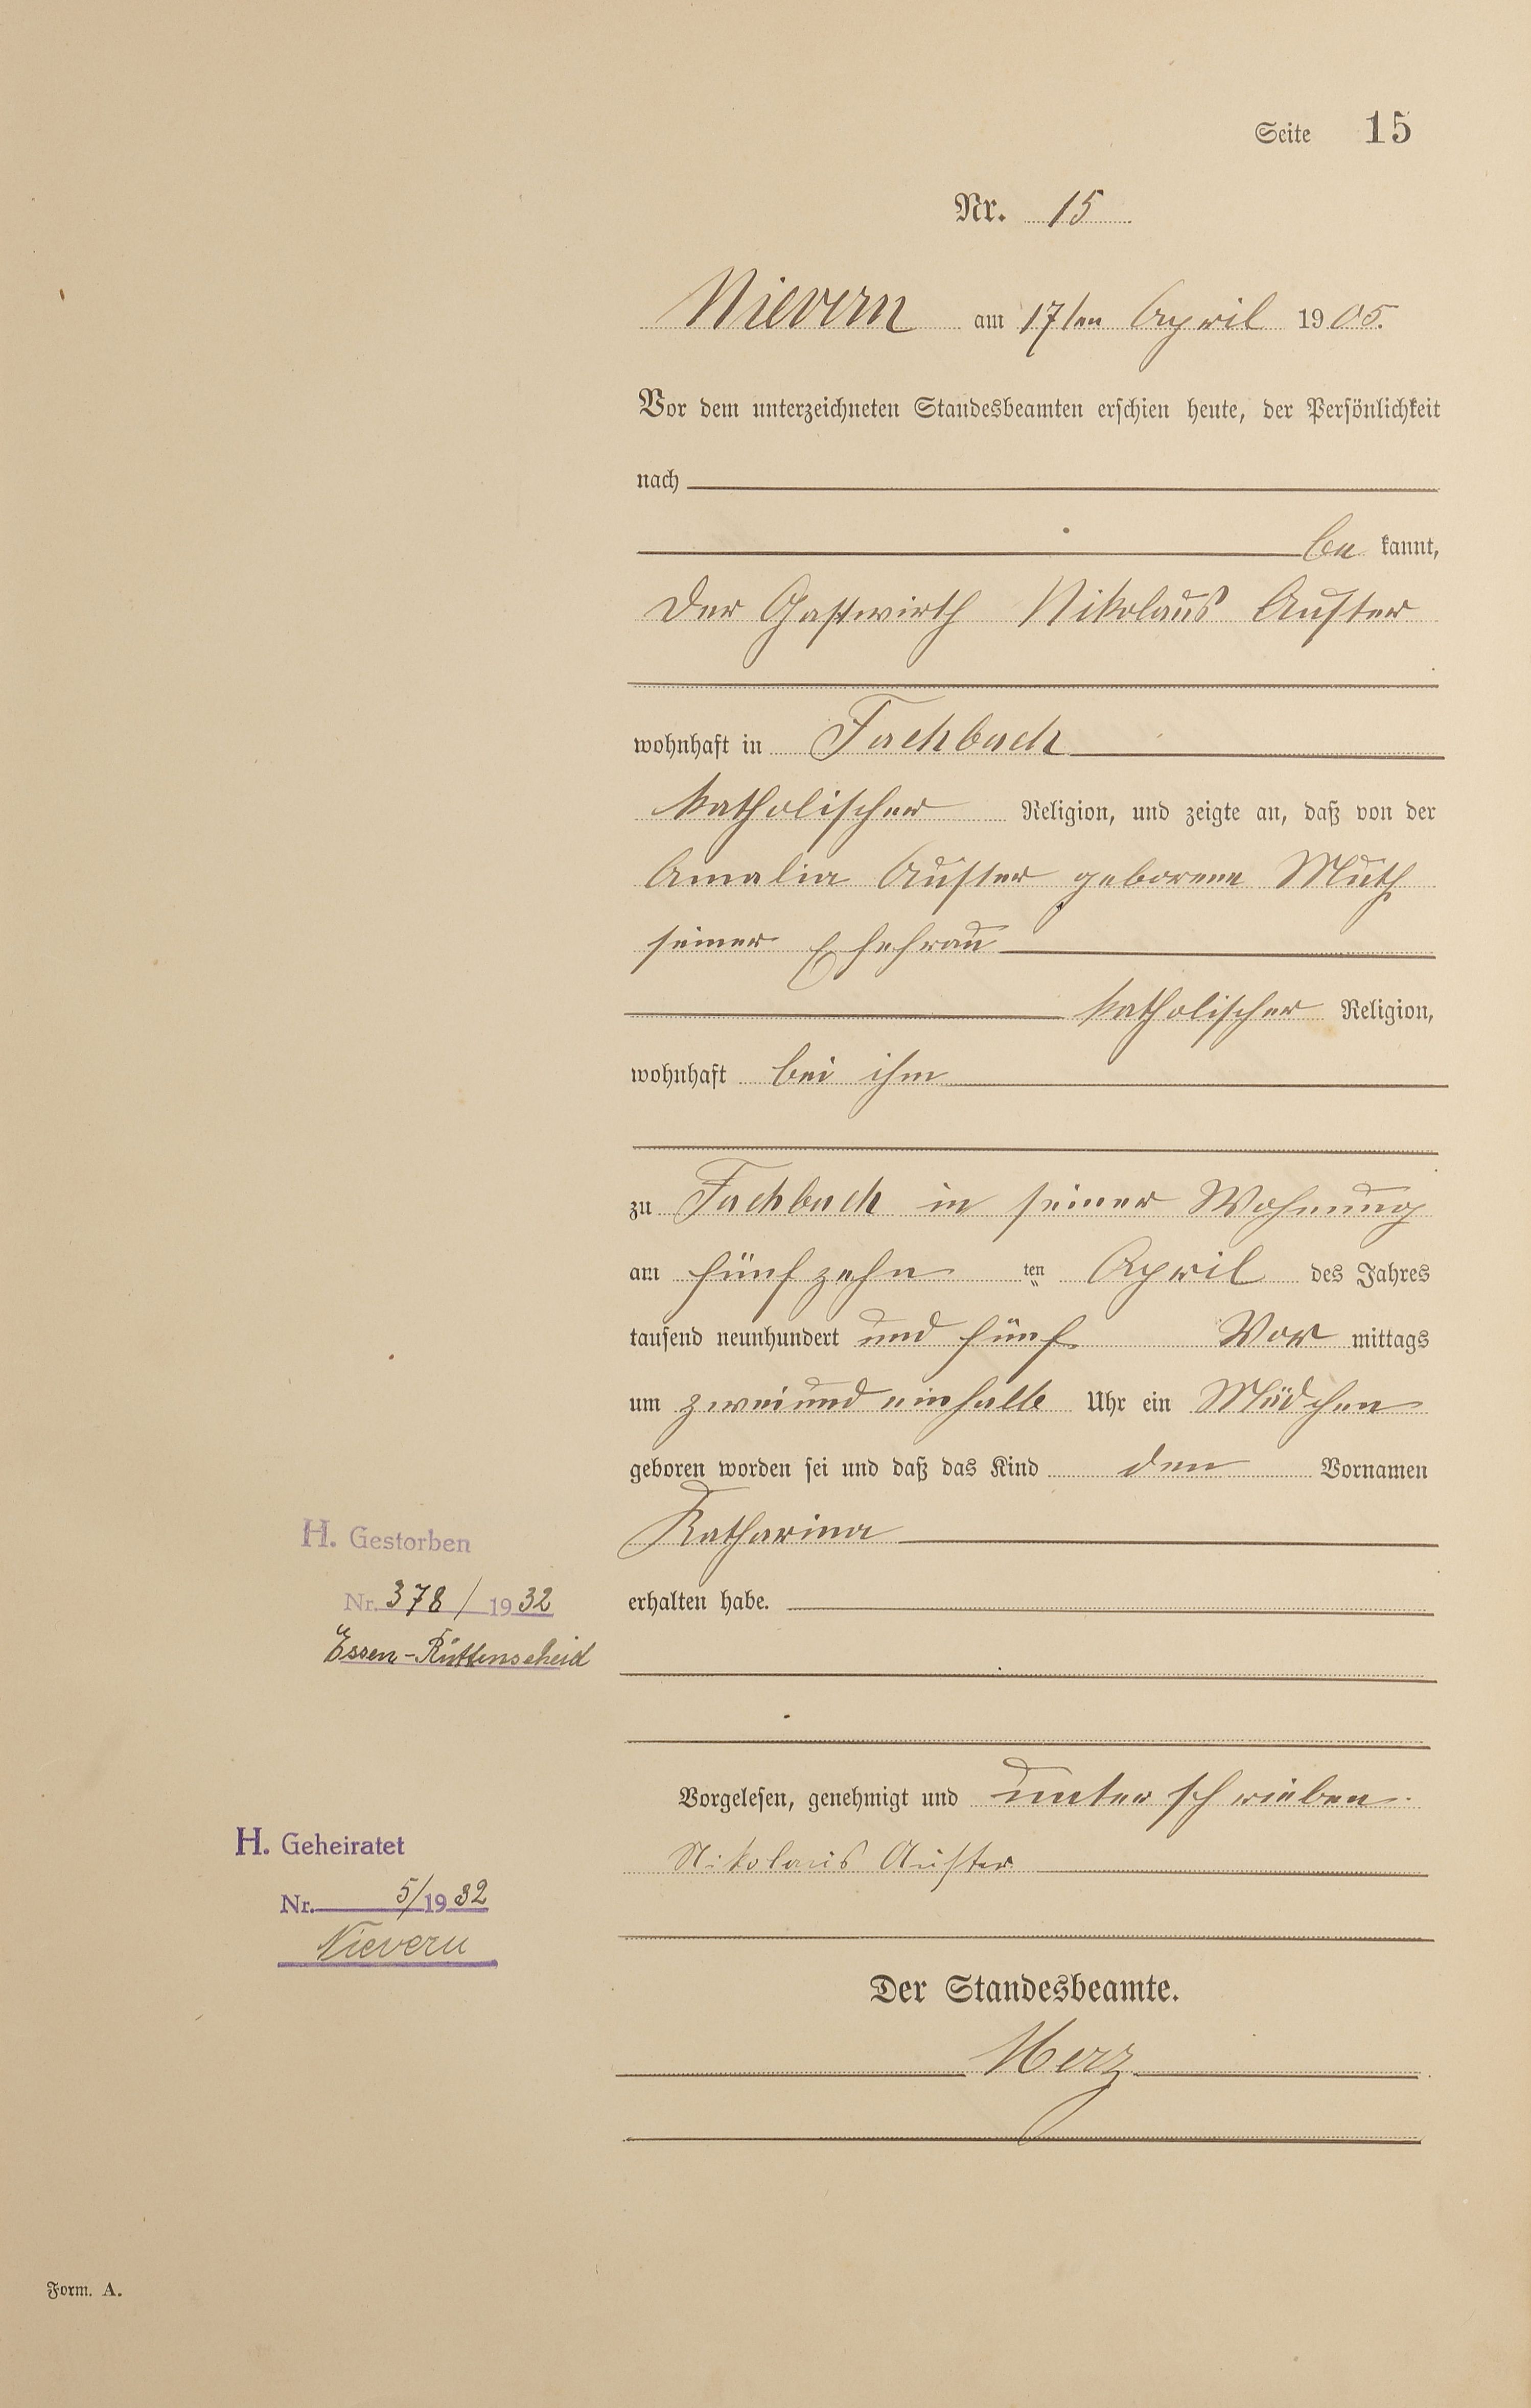 Seite 15
Nr. 15
Nievern am 17ten April 1905.
Vor dem unterzeichneten Standesbeamten erschien heute, der Persönlichkeit
nach
be kannt,
der Gastwirth Nikolaus Auster
wohnhaft in Fachbach
katholischer Religion, und zeigte an, daß von der
Amalia Auster geborene Muth
seiner Ehefrau
katholischer Religion,
wohnhaft bei ihm
zu Fachbach in seiner Wohnung
am fünfzehn ten April des Jahres
tausend neunhundert und fünf Vor mittags
um zweiundeinhalb Uhr ein Mädchen
geboren worden sei und daß das Kind den Vornamen
Katharina
erhalten habe.
H. Gestorben
Nr. 378/1932
Essen-Rüttenscheid
Vorgelesen, genehmigt und unterschrieben.
Nikolaus Auster
H. Geheiratet
Nr. 5/1932
Nievern
Der Standesbeamte.
Merz
Form. A.